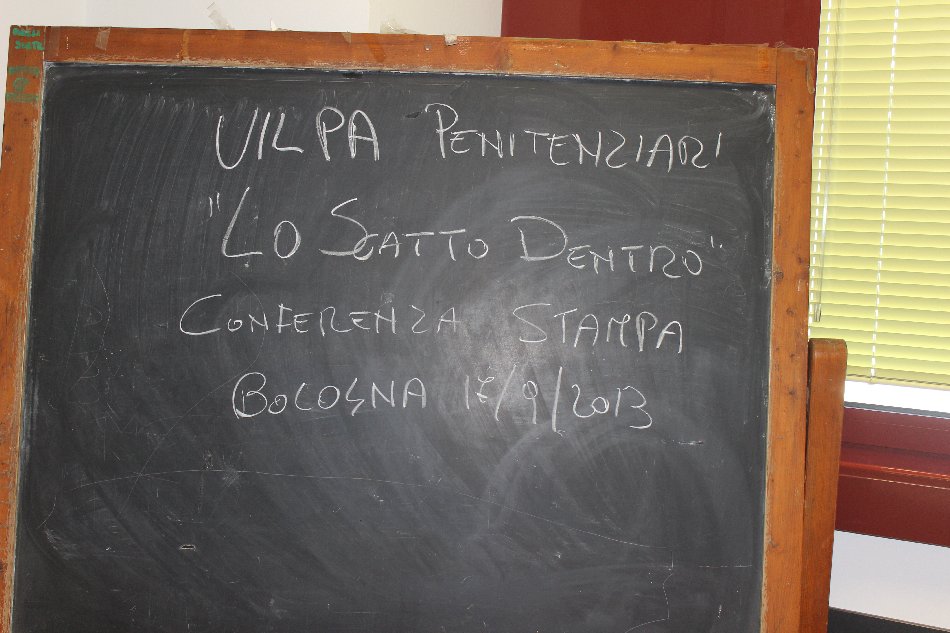 UIL PA PENITENZIARI
"LO SCATTO DENTRO".
CONFERENZA STAMPA
BOLOGNA 17/9/2013